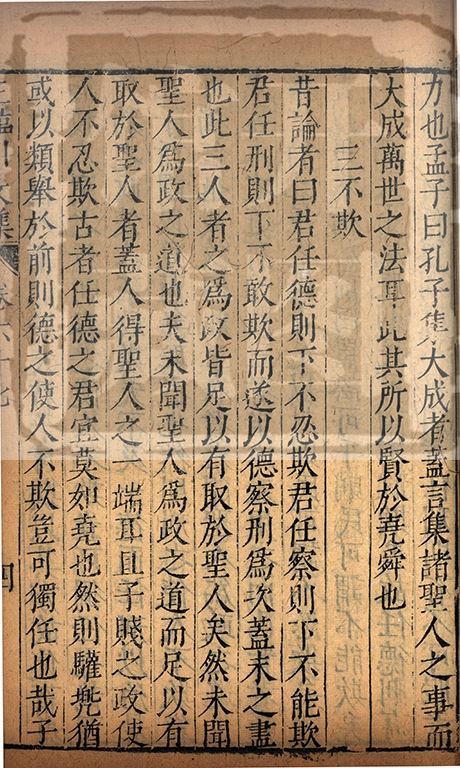 力也孟子曰孔子集大成者蓋言集諸聖人之事而
大成萬世之法耳此其所以賢於堯舜也
三不欺
昔論者曰君任德則下不忍欺君任察則下不能欺
君任刑則下不敢欺而遂以德察刑為次蓋未之盡
也此三人者之為政皆足以有取於聖人矣然未聞
聖人為政之道也夫未聞聖人為政之道而足以有
取於聖人者蓋人得聖人之一端耳且子賤之政使
人不忍欺古者任德之君宜莫如堯也然則驩兠猶
或以類舉於前則德之使人不欺豈可獨任也哉子
文集 卷六十七 四